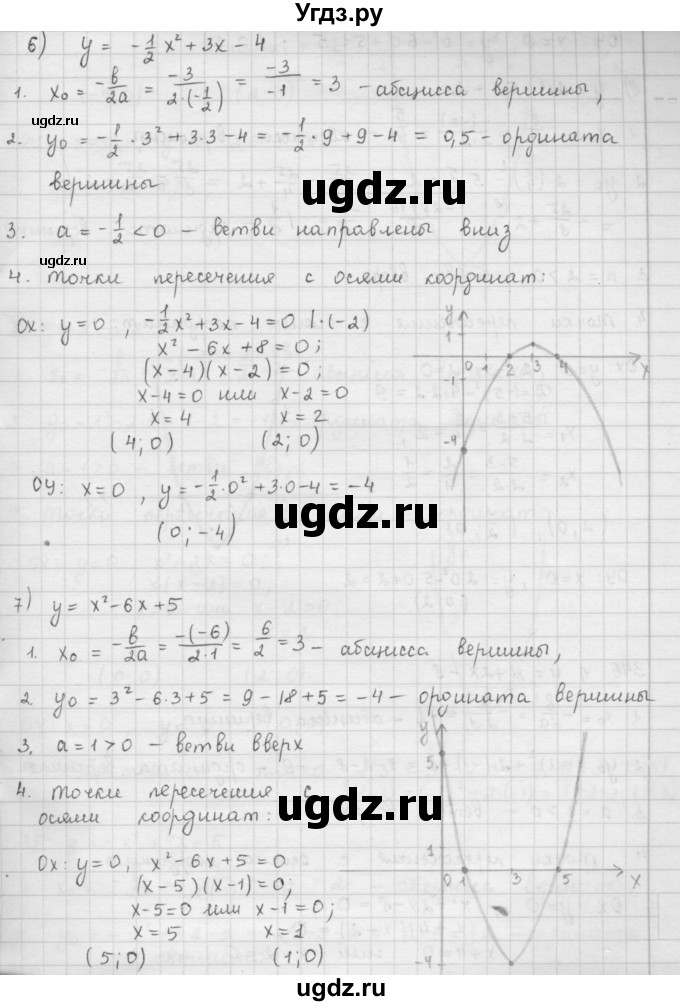 Угдз.ру
6) y = -1/2 x² + 3x - 4
1. x₀ = -в/2a = -3/(2·(-1/2)) = -3/-1 = 3 - абсцисса вершины,
gdz.ru
2. y₀ = -1/2 · 3² + 3·3 - 4 = -1/2 · 9 + 9 - 4 = 0,5 - ордината
вершины
ugdz.ru
3. a = -1/2 < 0 - ветви направлены вниз
gdz.ru
4. точки пересечения с осями координат:
Ox: y = 0, -1/2 x² + 3x - 4 = 0 |·(-2)
x² - 6x + 8 = 0;
(x-4)(x-2) = 0;
x-4=0 или x-2=0
x = 4 x = 2
(4;0) (2;0)
y
1
0 1 2 3 4 x
-1
-4
ugdz.ru
Oy: x = 0, y = -1/2·0² + 3·0 - 4 = -4
(0; -4)
ugdz.ru
7) y = x² - 6x + 5
1. x₀ = -в/2a = -(-6)/2·1 = 6/2 = 3 - абсцисса вершины,
ugdz.ru
2. y₀ = 3² - 6·3 + 5 = 9 - 18 + 5 = -4 - ордината вершины
3. a = 1 > 0 - ветви вверх
4. точки пересечения с
осями координат:
ugdz.ru
Ox: y = 0, x² - 6x + 5 = 0
(x-5)(x-1) = 0;
x-5=0 или x-1=0;
x = 5 x = 1
(5;0) (1;0)
y
5
1
0 1 3 5 x
-4
ugdz.ru